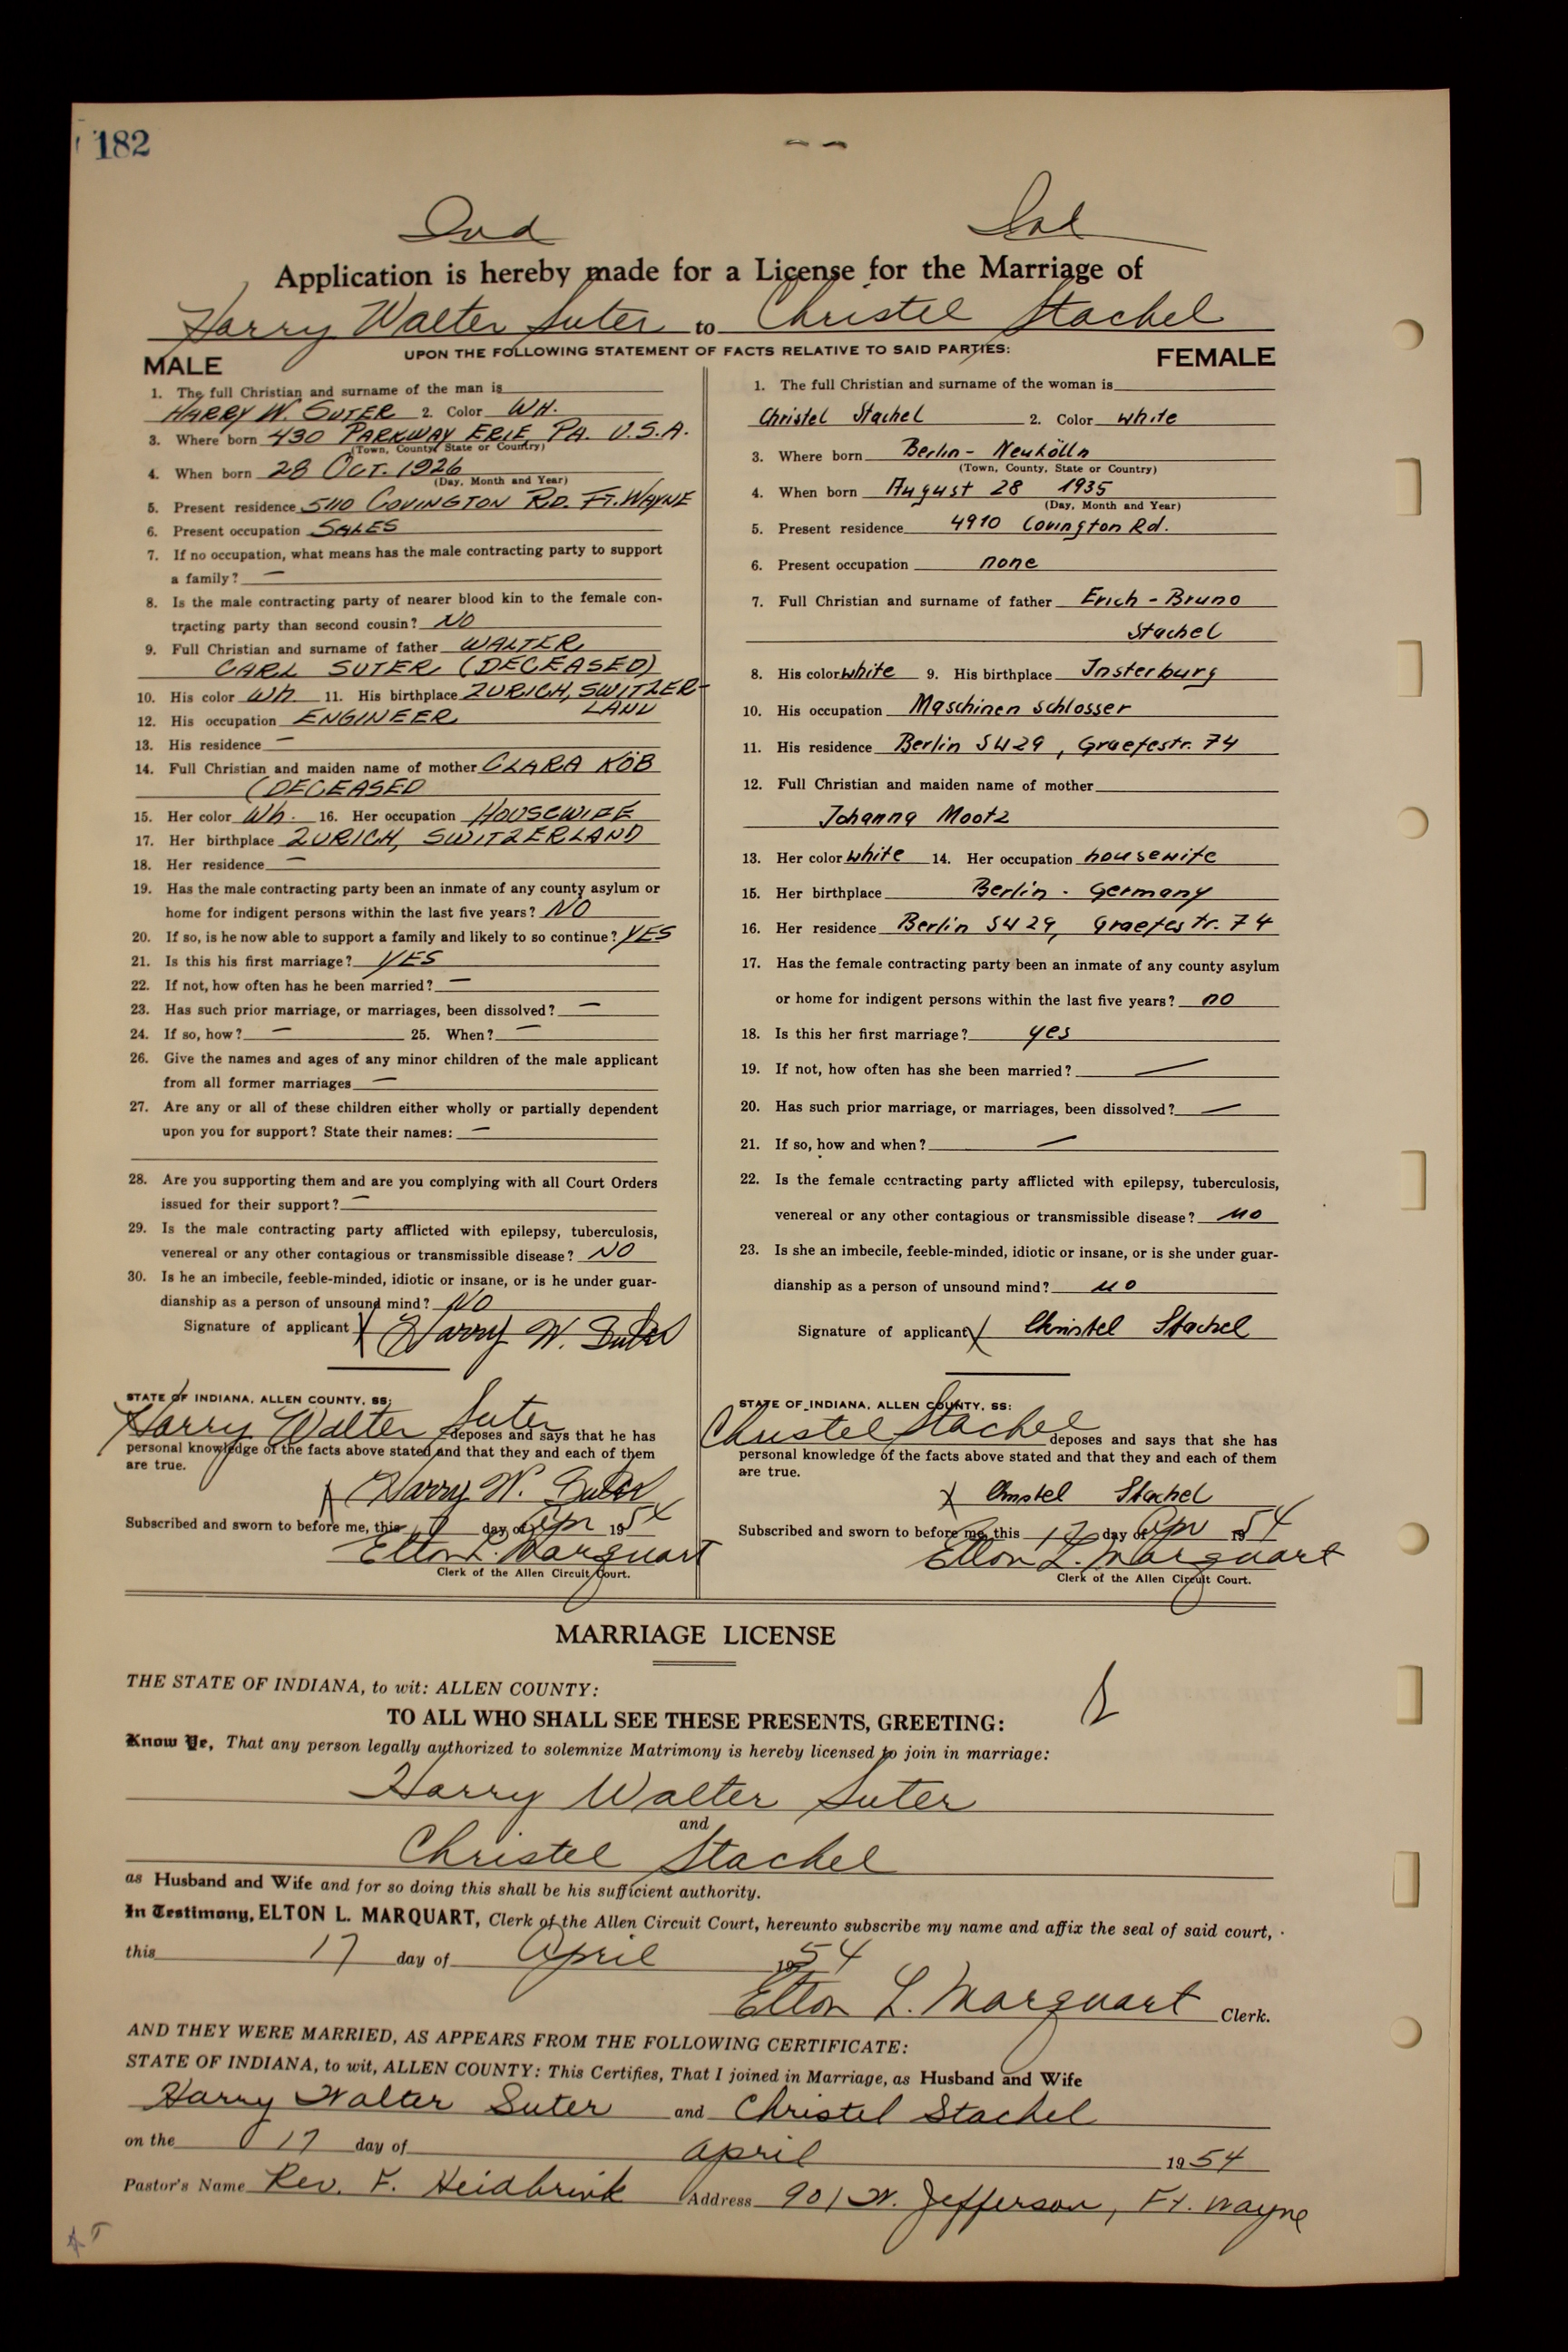 182
Ind Ind
Application is hereby made for a License for the Marriage of
Harry Walter Suter to Christel Stachel
UPON THE FOLLOWING STATEMENT OF FACTS RELATIVE TO SAID PARTIES:
MALE
1. The full Christian and surname of the man is
HARRY W. SUTER 2. Color WH.
3. Where born 430 PARKWAY ERIE PA. U.S.A.
(Town, County, State or Country)
4. When born 28 OCT. 1926
(Day, Month and Year)
5. Present residence 5110 COVINGTON RD. FT. WAYNE
6. Present occupation SALES
7. If no occupation, what means has the male contracting party to support
a family? —
8. Is the male contracting party of nearer blood kin to the female con-
tracting party than second cousin? NO
9. Full Christian and surname of father WALTER
CARL SUTER (DECEASED)
10. His color Wh. 11. His birthplace ZURICH, SWITZER-
LAND
12. His occupation ENGINEER
13. His residence —
14. Full Christian and maiden name of mother CLARA KÖB
(DECEASED
15. Her color Wh. 16. Her occupation HOUSEWIFE
17. Her birthplace ZURICH, SWITZERLAND
18. Her residence —
19. Has the male contracting party been an inmate of any county asylum or
home for indigent persons within the last five years? NO
20. If so, is he now able to support a family and likely to so continue? YES
21. Is this his first marriage? YES
22. If not, how often has he been married? —
23. Has such prior marriage, or marriages, been dissolved? —
24. If so, how? — 25. When? —
26. Give the names and ages of any minor children of the male applicant
from all former marriages —
27. Are any or all of these children either wholly or partially dependent
upon you for support? State their names: —
28. Are you supporting them and are you complying with all Court Orders
issued for their support? —
29. Is the male contracting party afflicted with epilepsy, tuberculosis,
venereal or any other contagious or transmissible disease? NO
30. Is he an imbecile, feeble-minded, idiotic or insane, or is he under guar-
dianship as a person of unsound mind? NO
Signature of applicant X Harry W. Suter
STATE OF INDIANA, ALLEN COUNTY, SS:
Harry Walter Suter deposes and says that he has
personal knowledge of the facts above stated and that they and each of them
are true.
X Harry W. Suter
Subscribed and sworn to before me, this 17 day of Apr 1954
Elton L. Marquart
Clerk of the Allen Circuit Court.
FEMALE
1. The full Christian and surname of the woman is
Christel Stachel 2. Color white
3. Where born Berlin - Neukölln
(Town, County, State or Country)
4. When born August 28 1935
(Day, Month and Year)
5. Present residence 4910 Covington Rd.
6. Present occupation none
7. Full Christian and surname of father Erich - Bruno
Stachel
8. His color white 9. His birthplace Insterburg
10. His occupation Maschinen schlosser
11. His residence Berlin SW 29, Graefestr. 74
12. Full Christian and maiden name of mother
Johanna Mootz
13. Her color white 14. Her occupation housewife
15. Her birthplace Berlin - Germany
16. Her residence Berlin SW 29, Graefestr. 74
17. Has the female contracting party been an inmate of any county asylum
or home for indigent persons within the last five years? no
18. Is this her first marriage? yes
19. If not, how often has she been married? —
20. Has such prior marriage, or marriages, been dissolved? —
21. If so, how and when? —
22. Is the female contracting party afflicted with epilepsy, tuberculosis,
venereal or any other contagious or transmissible disease? no
23. Is she an imbecile, feeble-minded, idiotic or insane, or is she under guar-
dianship as a person of unsound mind? no
Signature of applicant X Christel Stachel
STATE OF INDIANA, ALLEN COUNTY, SS:
Christel Stachel deposes and says that she has
personal knowledge of the facts above stated and that they and each of them
are true.
X Christel Stachel
Subscribed and sworn to before me, this 17 day of Apr 1954
Elton L. Marquart
Clerk of the Allen Circuit Court.
MARRIAGE LICENSE
THE STATE OF INDIANA, to wit: ALLEN COUNTY:
TO ALL WHO SHALL SEE THESE PRESENTS, GREETING:
Know Ye, That any person legally authorized to solemnize Matrimony is hereby licensed to join in marriage:
Harry Walter Suter
and
Christel Stachel
as Husband and Wife and for so doing this shall be his sufficient authority.
In Testimony, ELTON L. MARQUART, Clerk of the Allen Circuit Court, hereunto subscribe my name and affix the seal of said court,
this 17 day of April 1954
Elton L. Marquart Clerk.
AND THEY WERE MARRIED, AS APPEARS FROM THE FOLLOWING CERTIFICATE:
STATE OF INDIANA, to wit, ALLEN COUNTY: This Certifies, That I joined in Marriage, as Husband and Wife
Harry Walter Suter and Christel Stachel
on the 17 day of April 1954
Pastor's Name Rev. F. Heidbrink Address 901 W. Jefferson, Ft. Wayne